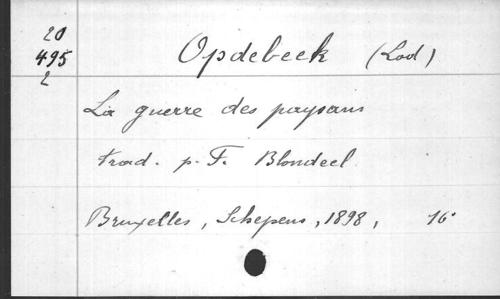 20
495
2
Opdebeek (Lod)
La guerre des paysans
trad. p. F. Blondeel
Bruxelles, Schepens, 1898, 16°